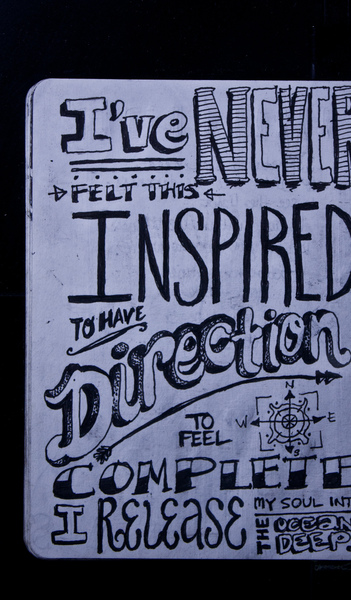 I've NEVER
FELT THIS
INSPIRED
TO HAVE
Direction
N
W E
S
TO
FEEL
COMPLETE
I RELEASE
MY SOUL INT
THE OCEAN
DEEP.